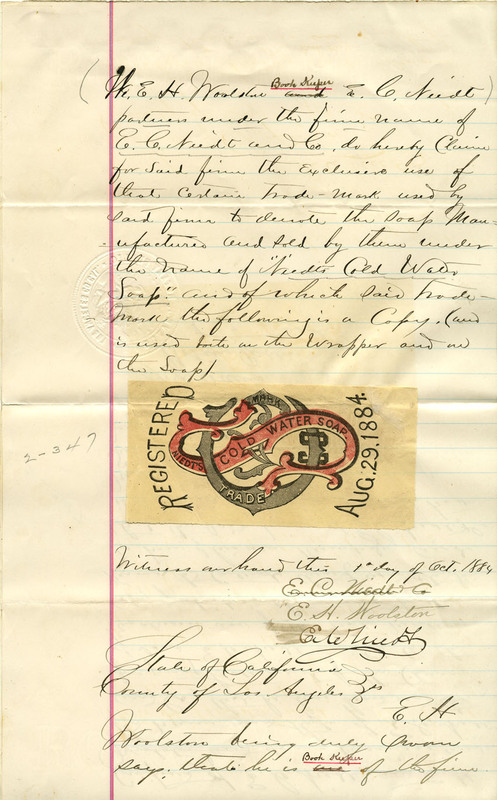 Book Keeper
(We. E. H. Woolston and E. C. Niedt)
partners under the firm name of
E. C. Niedt and Co, do hereby Claim
for said firm the exclusive use of
that certain trade-mark used by
said firm to denote the soap Man-
ufactured and sold by them under
the name of "Niedts Cold Water
Soap" and of which said trade-
mark the following is a Copy. (and
is used both on the Wrapper and on
the Soap)
2-347
REGISTERED
MARK
NIEDT'S COLD WATER SOAP
TRADE
AUG. 29. 1884
Witness our hand this 1st day of Oct. 1884
E. C. Niedt & Co
E. H. Woolston
State of California
County of Los Angeles } ss
E. H
Woolston being duly sworn
Book Keeper
says, that he is one of the firm